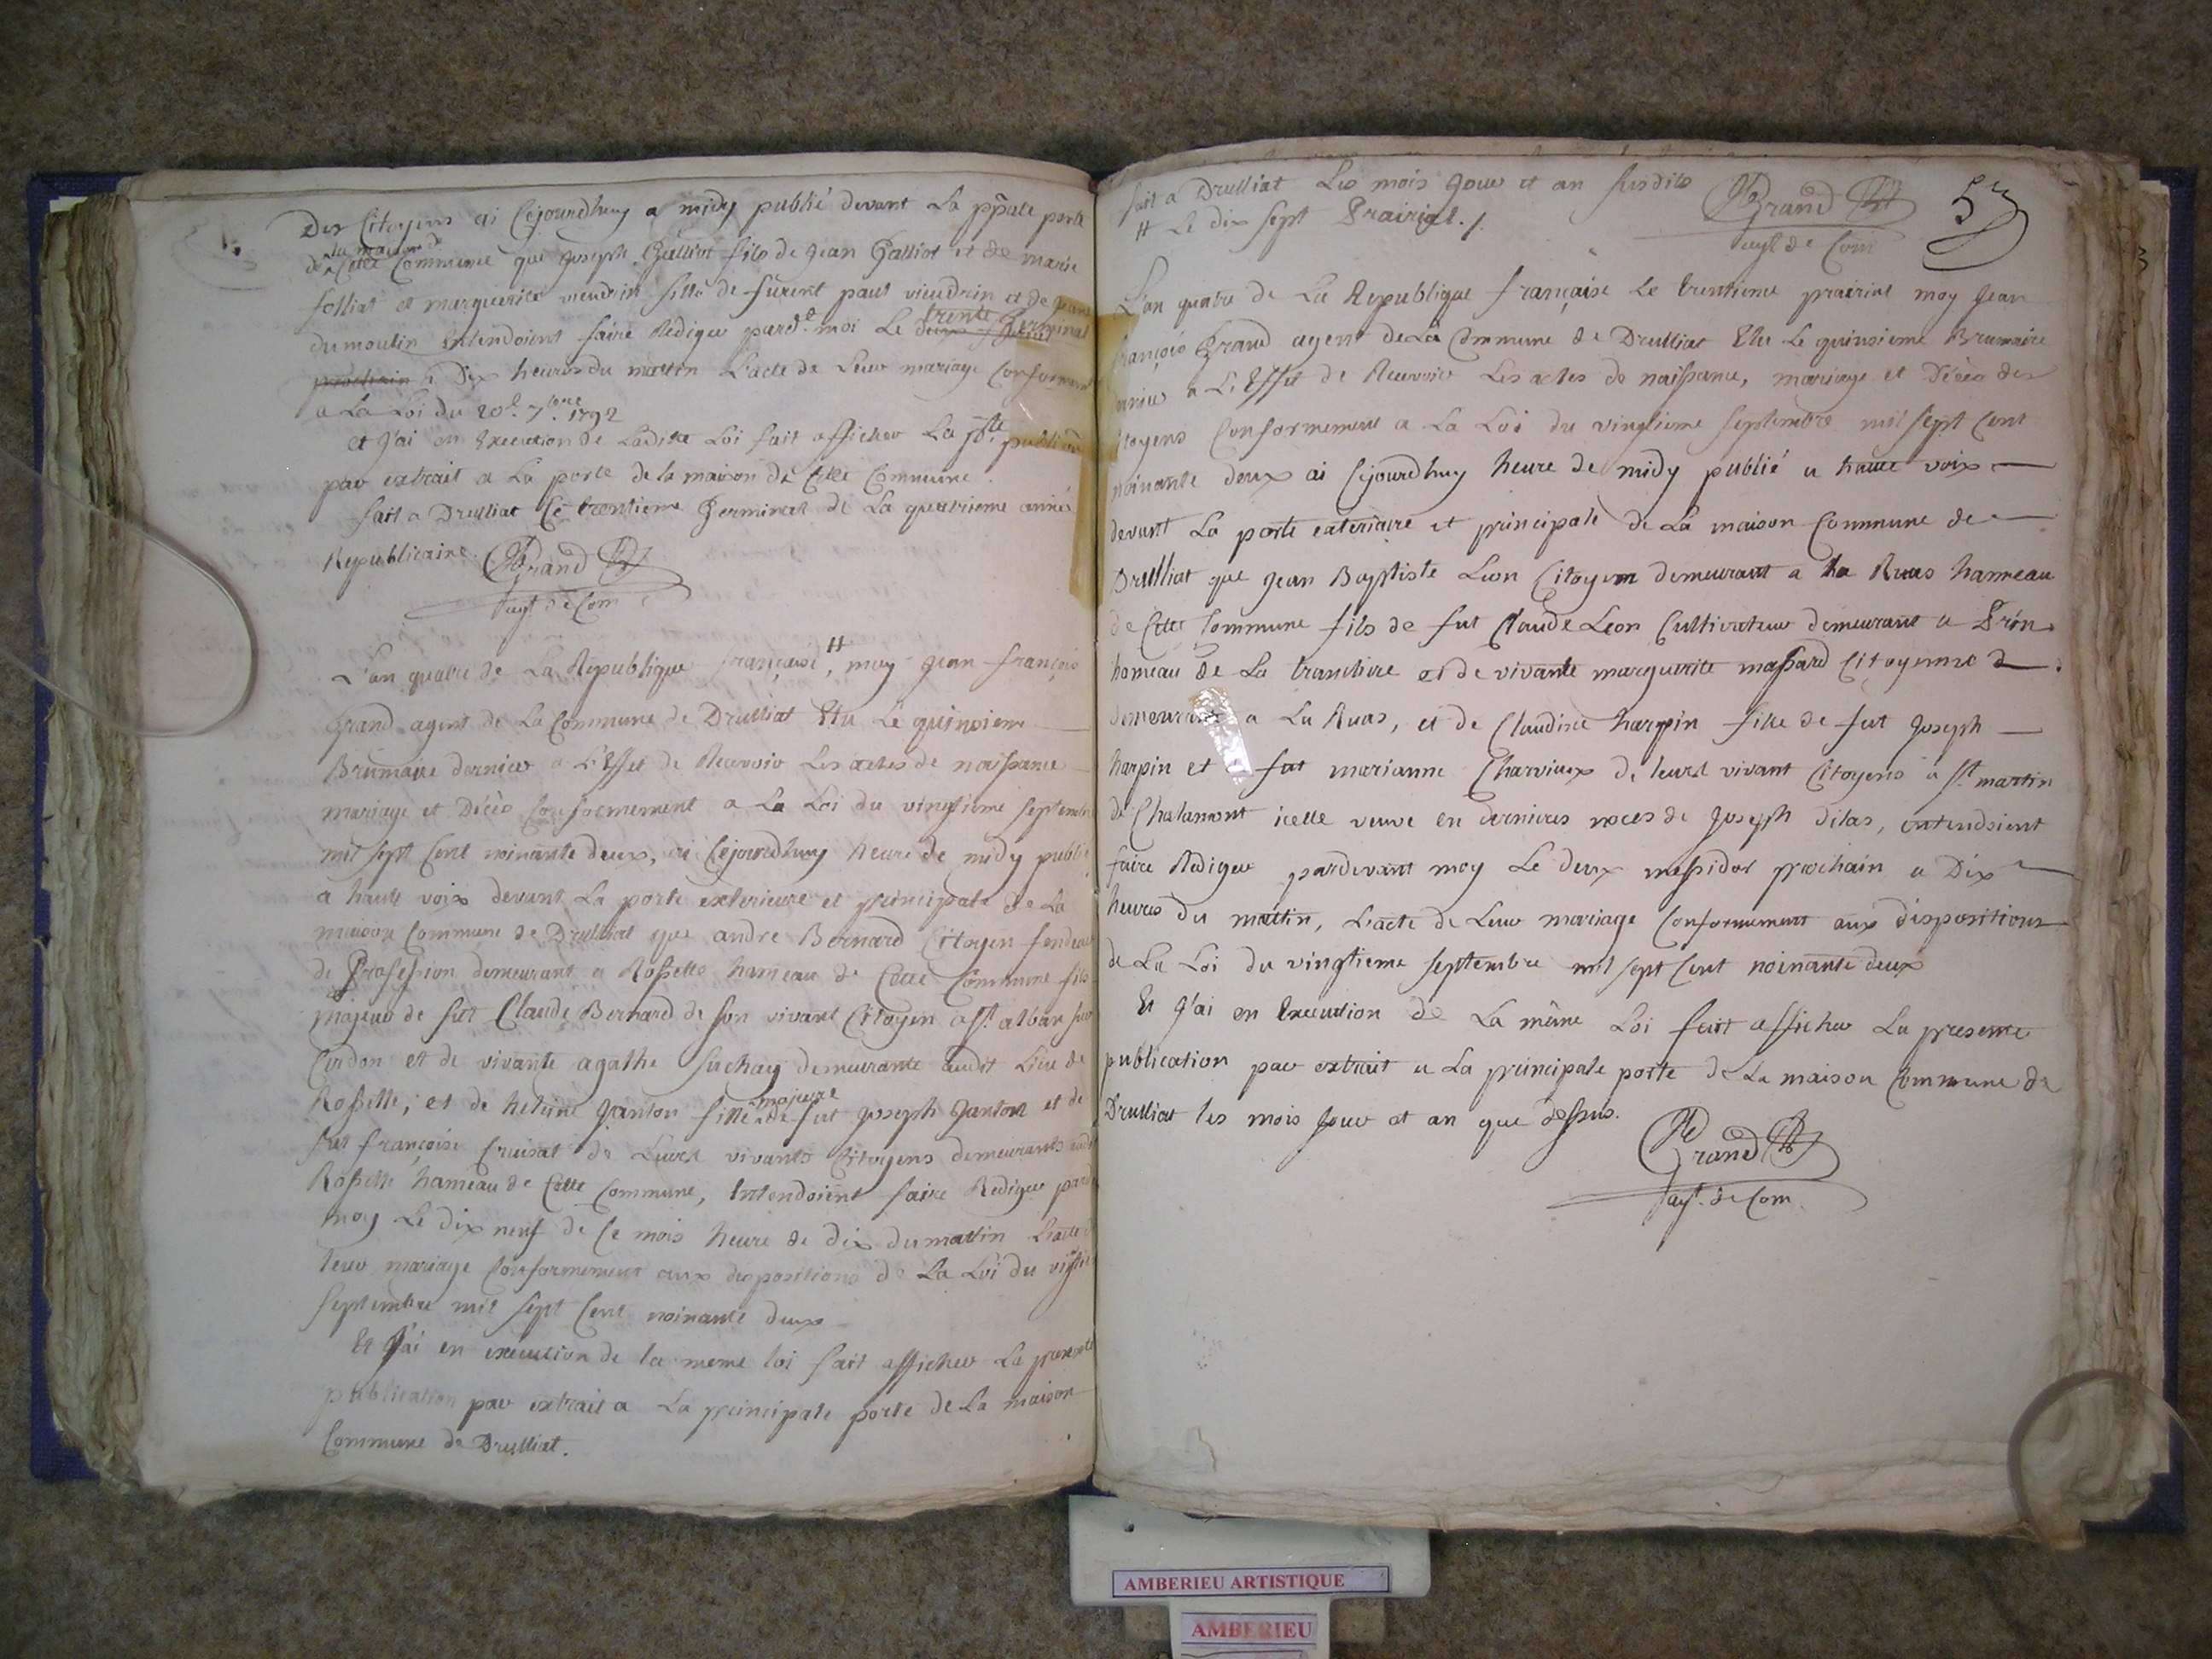 Des Citoyens ai Cejourdhuy a midy publié devant La pp̃ale porte
de la maison de Cette Commune que Joseph Galliot fils de Jean Galliot et de marie
folliat et marguerite vieudrin fille de furent paul vieudrin et de
dumoulin Entendoient faire Rediger pard.t moi Le trente Germinal
prochain a Dix heures du mattin L'acte de Leur mariage Conformement
a La Loi du 20e. 7.bre 1792
et J'ai en Execution de Ladite Loi fait afficher La pñte publi
par extrait a La porte de la maison de Cette Commune.
fait a Drulliat Ce trentieme Germinal de La quatrieme année
Republicaine. Grand
agt de Com
L'an quatre de La Republique française #, moy Jean françois
Grand agent de La Commune de Drulliat Elu Le quinsieme
Brumaire dernier a L'Effet de Recevoir Les actes de naissance
mariage et Décès Conformement a La Loi du vingtieme Septembre
mil sept Cent noinante deux, ai Cejourdhuy heure de midy publié
a haute voix devant La porte exterieure et principale de La
maison Commune de Drulliat que andré Bernard Citoyen
de Profession demeurant a Rossette hameau de Cette Commune fils
majeur de fut Claude Bernard de son vivant Citoyen a St. alban sur
Cerdon et de vivante agathe Suchay demeurante audit Lieu de
Rossette; et de heleine Janton fille majeure de fut Joseph Janton et de
fut françoise Cruisat de Leurs vivants Citoyens demeurants
Rossette hameau de Cette Commune, Entendoient faire Rediger
moy Le dix neuf de Ce mois heure de dix du mattin L'acte
leur mariage Conformement aux dispositions de La Loi du
Septembre mil sept Cent noinante deux
Et J'ai en execution de la meme loi fait afficher La presente
publication par extrait a La principale porte de La maison
Commune de Drulliat.
fait a Drulliat Les mois Jour et an susdits Grand 53
# Le dix sept Prairial./. agt de Com
L'an quatre de La Republique française Le trentieme prairial moy Jean
françois Grand agent de La Commune de Drulliat Elu Le quinsieme Brumaire
a L'Effet de Recevoir Les actes de naissance, mariage et Décès des
Citoyens Conformement a La Loi du vingtieme septembre mil sept Cent
noinante deux ai Cejourdhuy heure de midy publié a haute voix
devant La porte exterieure et principale de La maison Commune de
Drulliat que Jean Baptiste Leon Citoyen demeurant a La Ruas hameau
de Cette Commune fils de fut Claude Leon Cultivateur demeurant a Prin
hameau de La tranclière et de vivante marguerite massard Citoyenne
demeurant a La Ruas, et de Claudine harpin fille de fut Joseph
harpin et fut marianne Charvieux de leurs vivant Citoyens a St. martin
de Chalamont icelle veuve en dernieres noces de Joseph Dilas, entendoient
faire Rediger pardevant moy Le deux messidor prochain a Dix
heures du mattin, L'acte de Leur mariage Conformement aux dispositions
de La Loi du vingtieme septembre mil sept Cent noinante deux
Et J'ai en Execution de La même Loi fait afficher La presente
publication par extrait a La principale porte de La maison Commune de
Drulliat les mois Jour et an que dessus.
Grand
agt. de Com.
AMBERIEU ARTISTIQUE
AMBERIEU